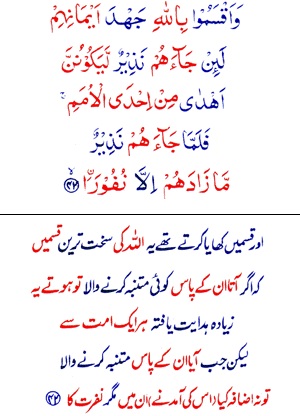 وَاَقْسَمُوْا بِاللّٰهِ جَهْدَ اَيْمَانِهِمْ
لَىِٕنْ جَآءَهُمْ نَذِيْرٌ لَّيَكُوْنُنَّ
اَهْدٰى مِنْ اِحْدَى الْاُمَمِ ۚ
فَلَمَّا جَآءَهُمْ نَذِيْرٌ
مَّا زَادَهُمْ اِلَّا نُفُوْرَا ۙ﴿۴۲﴾
اور قسمیں کھایا کرتے تھے یہ اللہ کی سخت ترین قسمیں
کہ اگر آتا ان کے پاس کوئی متنبہ کرنے والا تو ہوتے یہ
زیادہ ہدایت یافتہ ہر ایک امت سے
لیکن جب آیا ان کے پاس متنبہ کرنے والا
تو نہ اضافہ کیا (اس کی آمد نے) ان میں مگر نفرت کا ﴿۴۲﴾